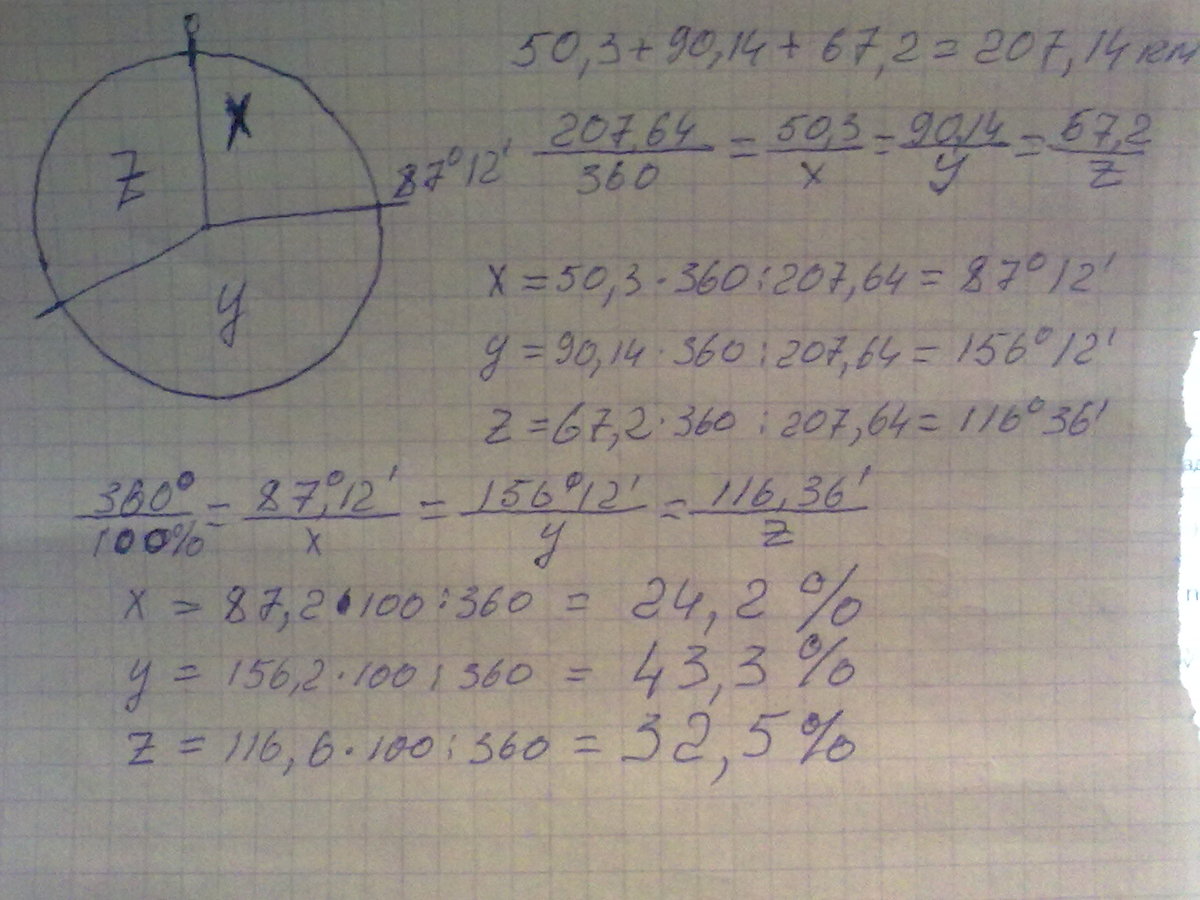 0
50,3+90,14+67,2=207,14км
X
Z
y
87°12'
207,64/360 = 50,3/x = 90,14/y = 67,2/z
x=50,3·360:207,64=87°12'
y=90,14·360:207,64=156°12'
z=67,2·360:207,64=116°36'
360°/100% = 87°,12'/x = 156°12'/y = 116,36'/z
x = 87,2·100:360 = 24,2%
y = 156,2·100:360 = 43,3%
z = 116,6·100:360 = 32,5%